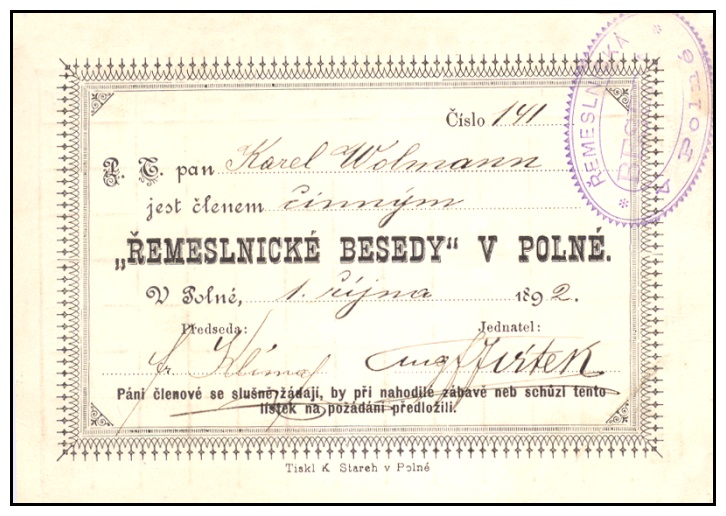 Číslo 141
P. T. pan Karel Wolmann
jest členem činným
„ŘEMESLNICKÉ BESEDY“ V POLNÉ.
V Polné, 1. října 1892.
Předseda: Jednatel:
fr. Klíma Aug. Jirítek
Páni členové se slušně žádají, by při nahodilé zábavě neb schůzi tento
lístek na požádání předložili.
Tiskl K. Stareh v Polné
ŘEMESLNICKÁ
BES
v Polné